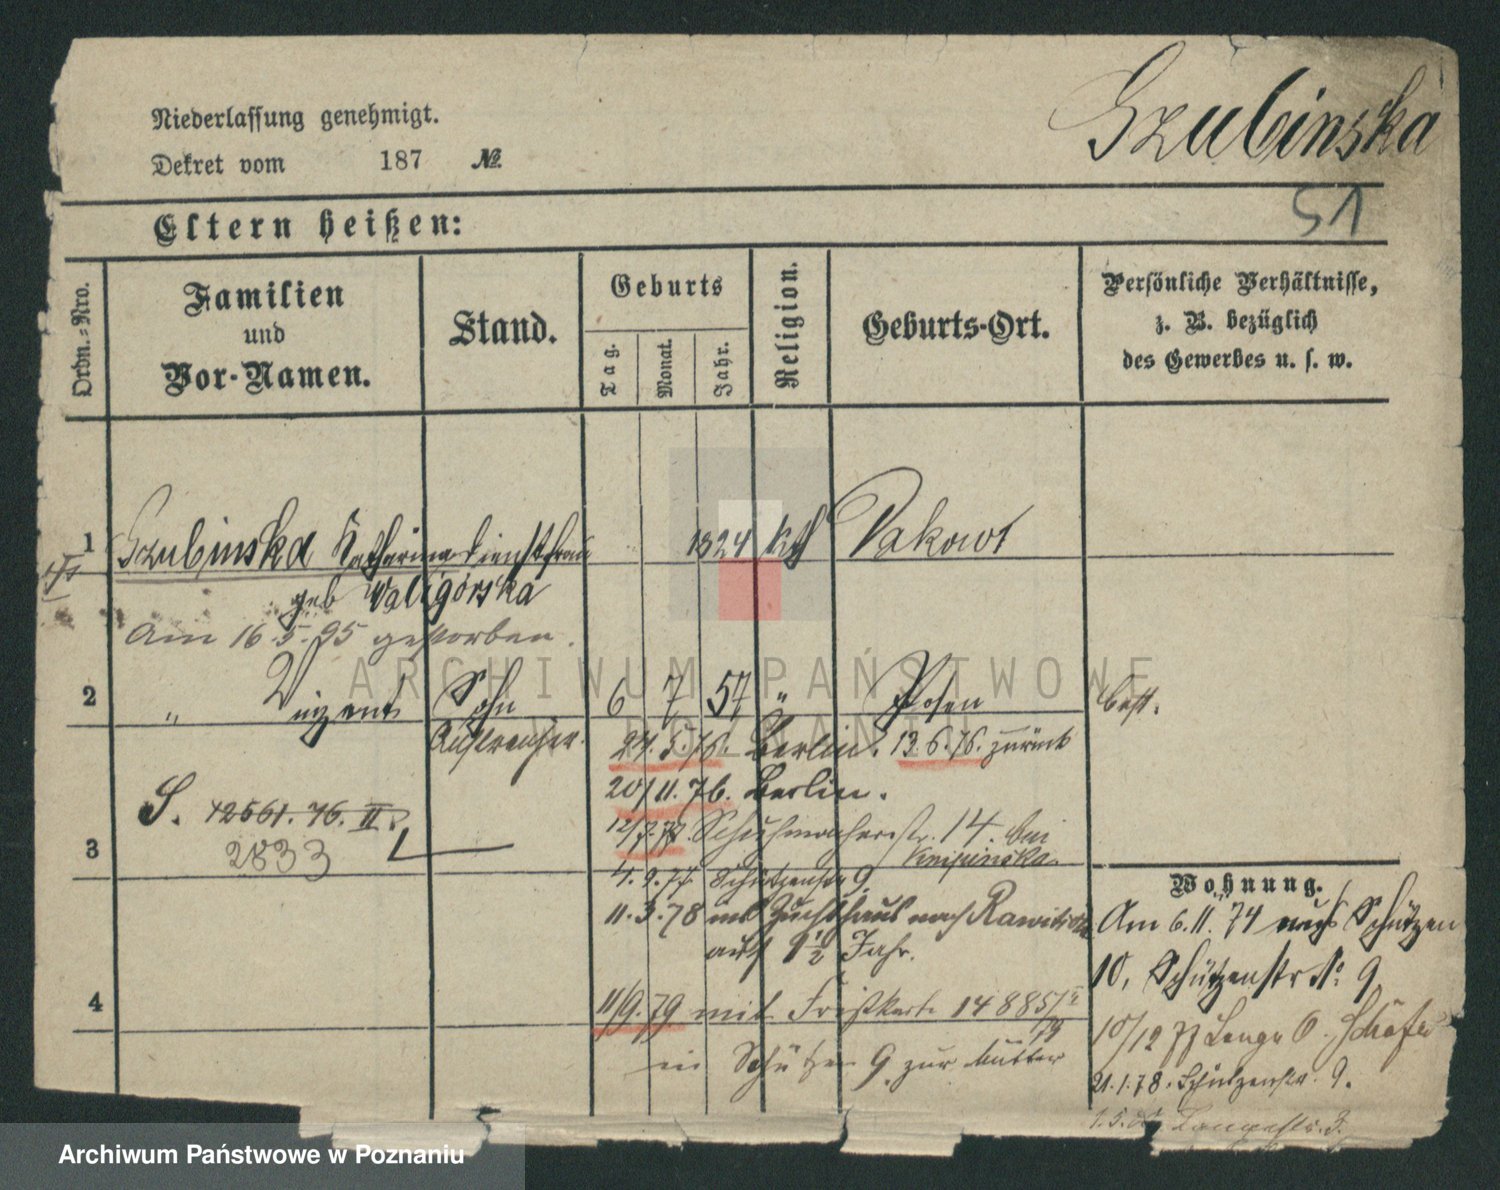 Szubinska
Niederlassung genehmigt.
Dekret vom 187 №
51
Eltern heißen:
Ordn.-Nro.
Familien
und
Vor-Namen.
Stand.
Geburts
Tag.
Monat.
Jahr.
Religion.
Geburts-Ort.
Persönliche Verhältnisse,
z. B. bezüglich
des Gewerbes u. s. w.
1 Szubinska Katharina Dienstfrau 1824 kth Pakowt
geb Waligórska
Am 16.5.95 gestorben.
2 " Vinzent Sohn 6 7 57 " Posen best.
24.5.76. Berlin. 13.6.76. zurück
20/11.76. Berlin.
S. 12561. 76. II.
12/7.77. Schuhmacherstr. 14. bei
2833
3
Knipinska.
4.9.77 Schützenstr 9.
11.3.78 ins Zuchthaus nach Rawitsch
auf 1 1/2 Jahr.
4 11/9.79 mit Freikarte 14885/
79
in Schützen 9 zur Mutter
Wohnung.
Am 6.11.74 nach Schützen
10, Schützenstr No 9
10/12 77 Lange 6.
21.1.78. Schützenstr. 9.
Langestr. 3.
ARCHIWUM PAŃSTWOWE
W POZNANIU
Archiwum Państwowe w Poznaniu